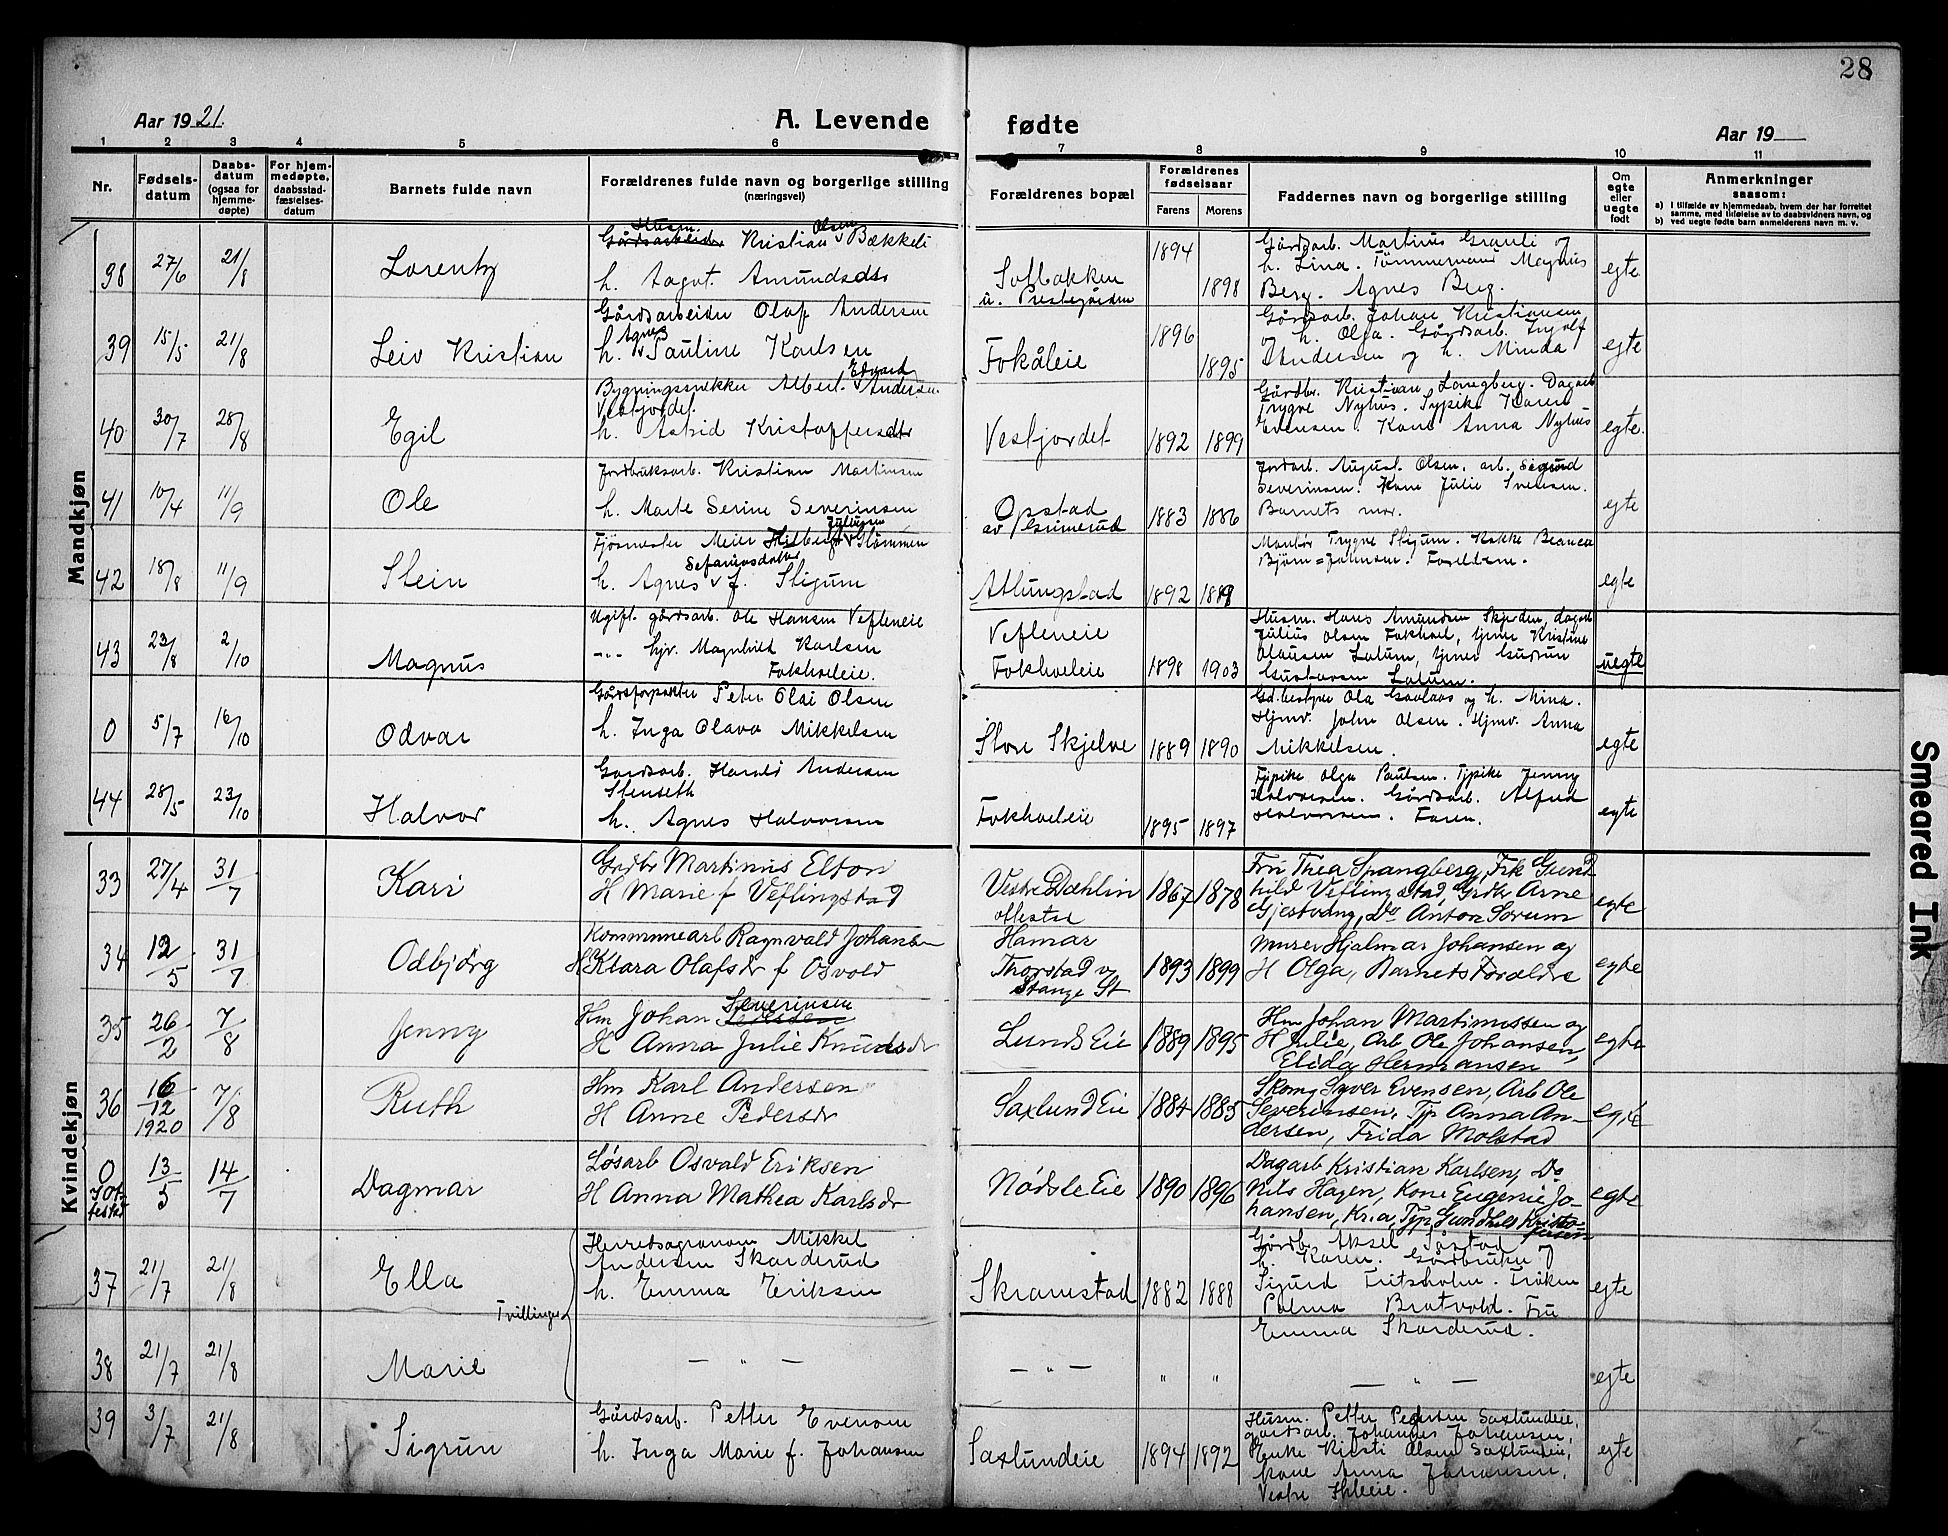 28
Aar 1921.
A. Levende fødte
Aar 19
1 2 3 4 5 6 7 8 9 10 11
Nr.
Fødsels-
datum
Daabs-
datum
(ogsaa for
hjemme-
døpte)
For hjem-
medøpte,
daabsstad-
fæstelses-
datum
Barnets fulde navn
Forældrenes fulde navn og borgerlige stilling
(næringsvei)
Forældrenes bopæl
Forældrenes
fødselsaar
Farens
Morens
Faddernes navn og borgerlige stilling
Om
egte
eller
uegte
født
Anmerkninger
saasom:
a) I tilfælde av hjemmedaab, hvem der har forrettet
samme, med tilføielse av to daabsvidners navn, og
b) ved uegte fødte barn anmelderens navn m. v.
Mandkjøn
98 27/6 21/8 Lorentz
Husm. Olsen
Gårdsarbeider Kristian v Bækkeli
h. Aagot Amundsdtr
Solbakken
u. Prestegården
1894 1898
Gårdsarb. Martius Granli og
h. Lina. Tømmermand Magnus
Berg. Agnes Berg.
egte
39 15/5 21/8 Leiv Kristian
Gårdsarbeider Olaf Andersen
Agnes
h. v Pauline Karlsen
Fokåleie
1896 1895
Gårdsarb. Johan Kristiansen
og h. Olga. Gårdsarb. Ingolf
Andersen og h. Minda
egte
40 30/7 28/8 Egil
Edvard
Bygningssnekker Albert v Andersen
Vestjordet.
h. Astrid Kristoffersdtr
Vestjordet
1892 1899
Gårdbr. Kristian Longberg. Dagarb
Trygve Nyhus. Typike Karen
Evensen. Kone Anna Nyhus
egte.
41 10/4 11/9 Ole
Jordbruksarb. Kristian Martinsen
h. Marte Serine Severinsen
Opstad
av Grimerud
1883 1886
Jordarb. August Olsen. arb. Sigurd
Severinsen. Kone Julie Svensen.
Barnets mor.
egte
42 18/8 11/9 Stein
Julussen
Fjøsmester Meier Hilberg v Glommen
h. Agnes v f. Stigum
Atlungstad
1892 1889
Montør Trygve Stigum. Kokke Bianca
Bjørn=Johnsen. Foreldrene.
egte
43 23/8 2/10 Magnus
Ugift. gårdsarb. Ole Hansen Vefleneie
-"- hjv. Magnhild Karlsen
Fokholeie.
Vefleneie
Fokholeie
1898 1903
Husm. Hans Amundsen Skjerden, dagarb
Julius Olsen Fokhol, tjener Kristine
Olausen Latum, tjener Gudrun
Gustavsen Latum.
uegte
0 5/7 16/10 Odvar
Gårdsforpakter Peter Olai Olsen
h. Inga Olava Mikkelsen
Store Skjelve
1889 1890
Gd.bestyrer Ola Gaalaas og h. Mina.
Hjmv. John Olsen. Hjmv. Anna
Mikkelsen.
egte
44 28/5 23/10 Halvor
Gardsarb. Harald Andersen
Stenseth
h. Agnes Halvorsen
Fokholeie
1895 1897
Typike Olga Paulsen. Typike Jenny
Halvorsen. Gårdsarb. Alfred
Halvorsen. Faren.
egte
Kvindekjøn
33 27/4 31/7 Kari
Grdbr Martinius Elton
H Marie f Veflingstad
Vestre Dæhlin
1867 1878
Fru Thea Spangberg, Frk Gund
hild Veflingstad, Grdbr Arne
Gjestvang, Do Anton Sørum
egte
34 12/5 31/7 Odbjørg
Kommunearb Ragnvald Johansen
H Klara Olafsdr f Osvold
Hamar
Thorstad v
Stange St
1893 1899
Murer Hjalmar Johansen og
H Olga, Barnets Forældre
egte
35 26/2 7/8 Jenny
Severinsen
Hm Johan
H Anna Julie Knudsdr
Lunds Eie
1889 1895
Hm Johan Martinussen og
H Julie, Arb Ole Johansen,
Elida Hermansen
egte
36 16/12 1920 7/8 Ruth
Hm Karl Andersen
H Anne Pedersdr
Saxlund Eie
1884 1885
Skomg Syver Evensen, Arb Ole
Severinsen, Typ Anna An-
dersen, Frida Molstad
egte
0 13/5 14/7 Dagmar
Løsarb Osvald Eriksen
H Anna Mathea Karlsdr
Nødsle Eie
1890 1896
Dagarb Kristian Karlsen, Do
Nils Hagen, Kone Eugenie Jo-
hansen, Kr.a, Typ Gundhild Kristo-
fersen
egte
37 21/7 21/8 Ella
Herredsagronom Mikkel
Andersen Skarderud
h. Emma Eriksen
Skramstad
1882 1888
Gårdb. Aksel Sørstad og
h. Karen. Gårdbruker
Sigurd Fritsholm. Frøken
Palma Bratvold. Fru
Emma Skarderud.
egte
Tvillinger
38 21/7 21/8 Marie
— " —
— " —
" "
— " —
egte
39 3/7 21/8 Sigrun
Gårdsarb. Petter Evensen
h. Inga Marie f. Johansen
Saxlundeie
1894 1892
Husm. Petter Pedersen Saxlundeie,
gårdsarb. Johannes Johansen,
Enke Kirsti Olsen Saxlundeie,
kone Anna Johansen,
Vestre
egte
Smeared Ink